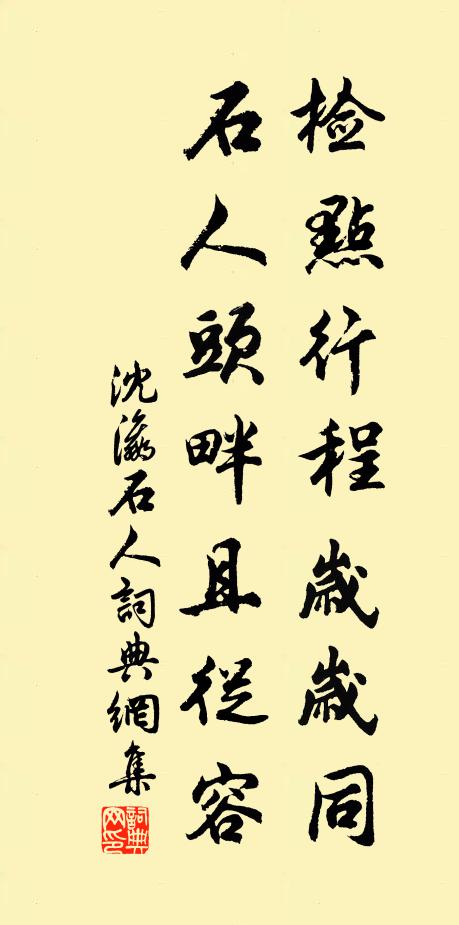 檢點行程歲歲同
石人頭畔且從容
沈瀛石人詞典網集
詞典網印